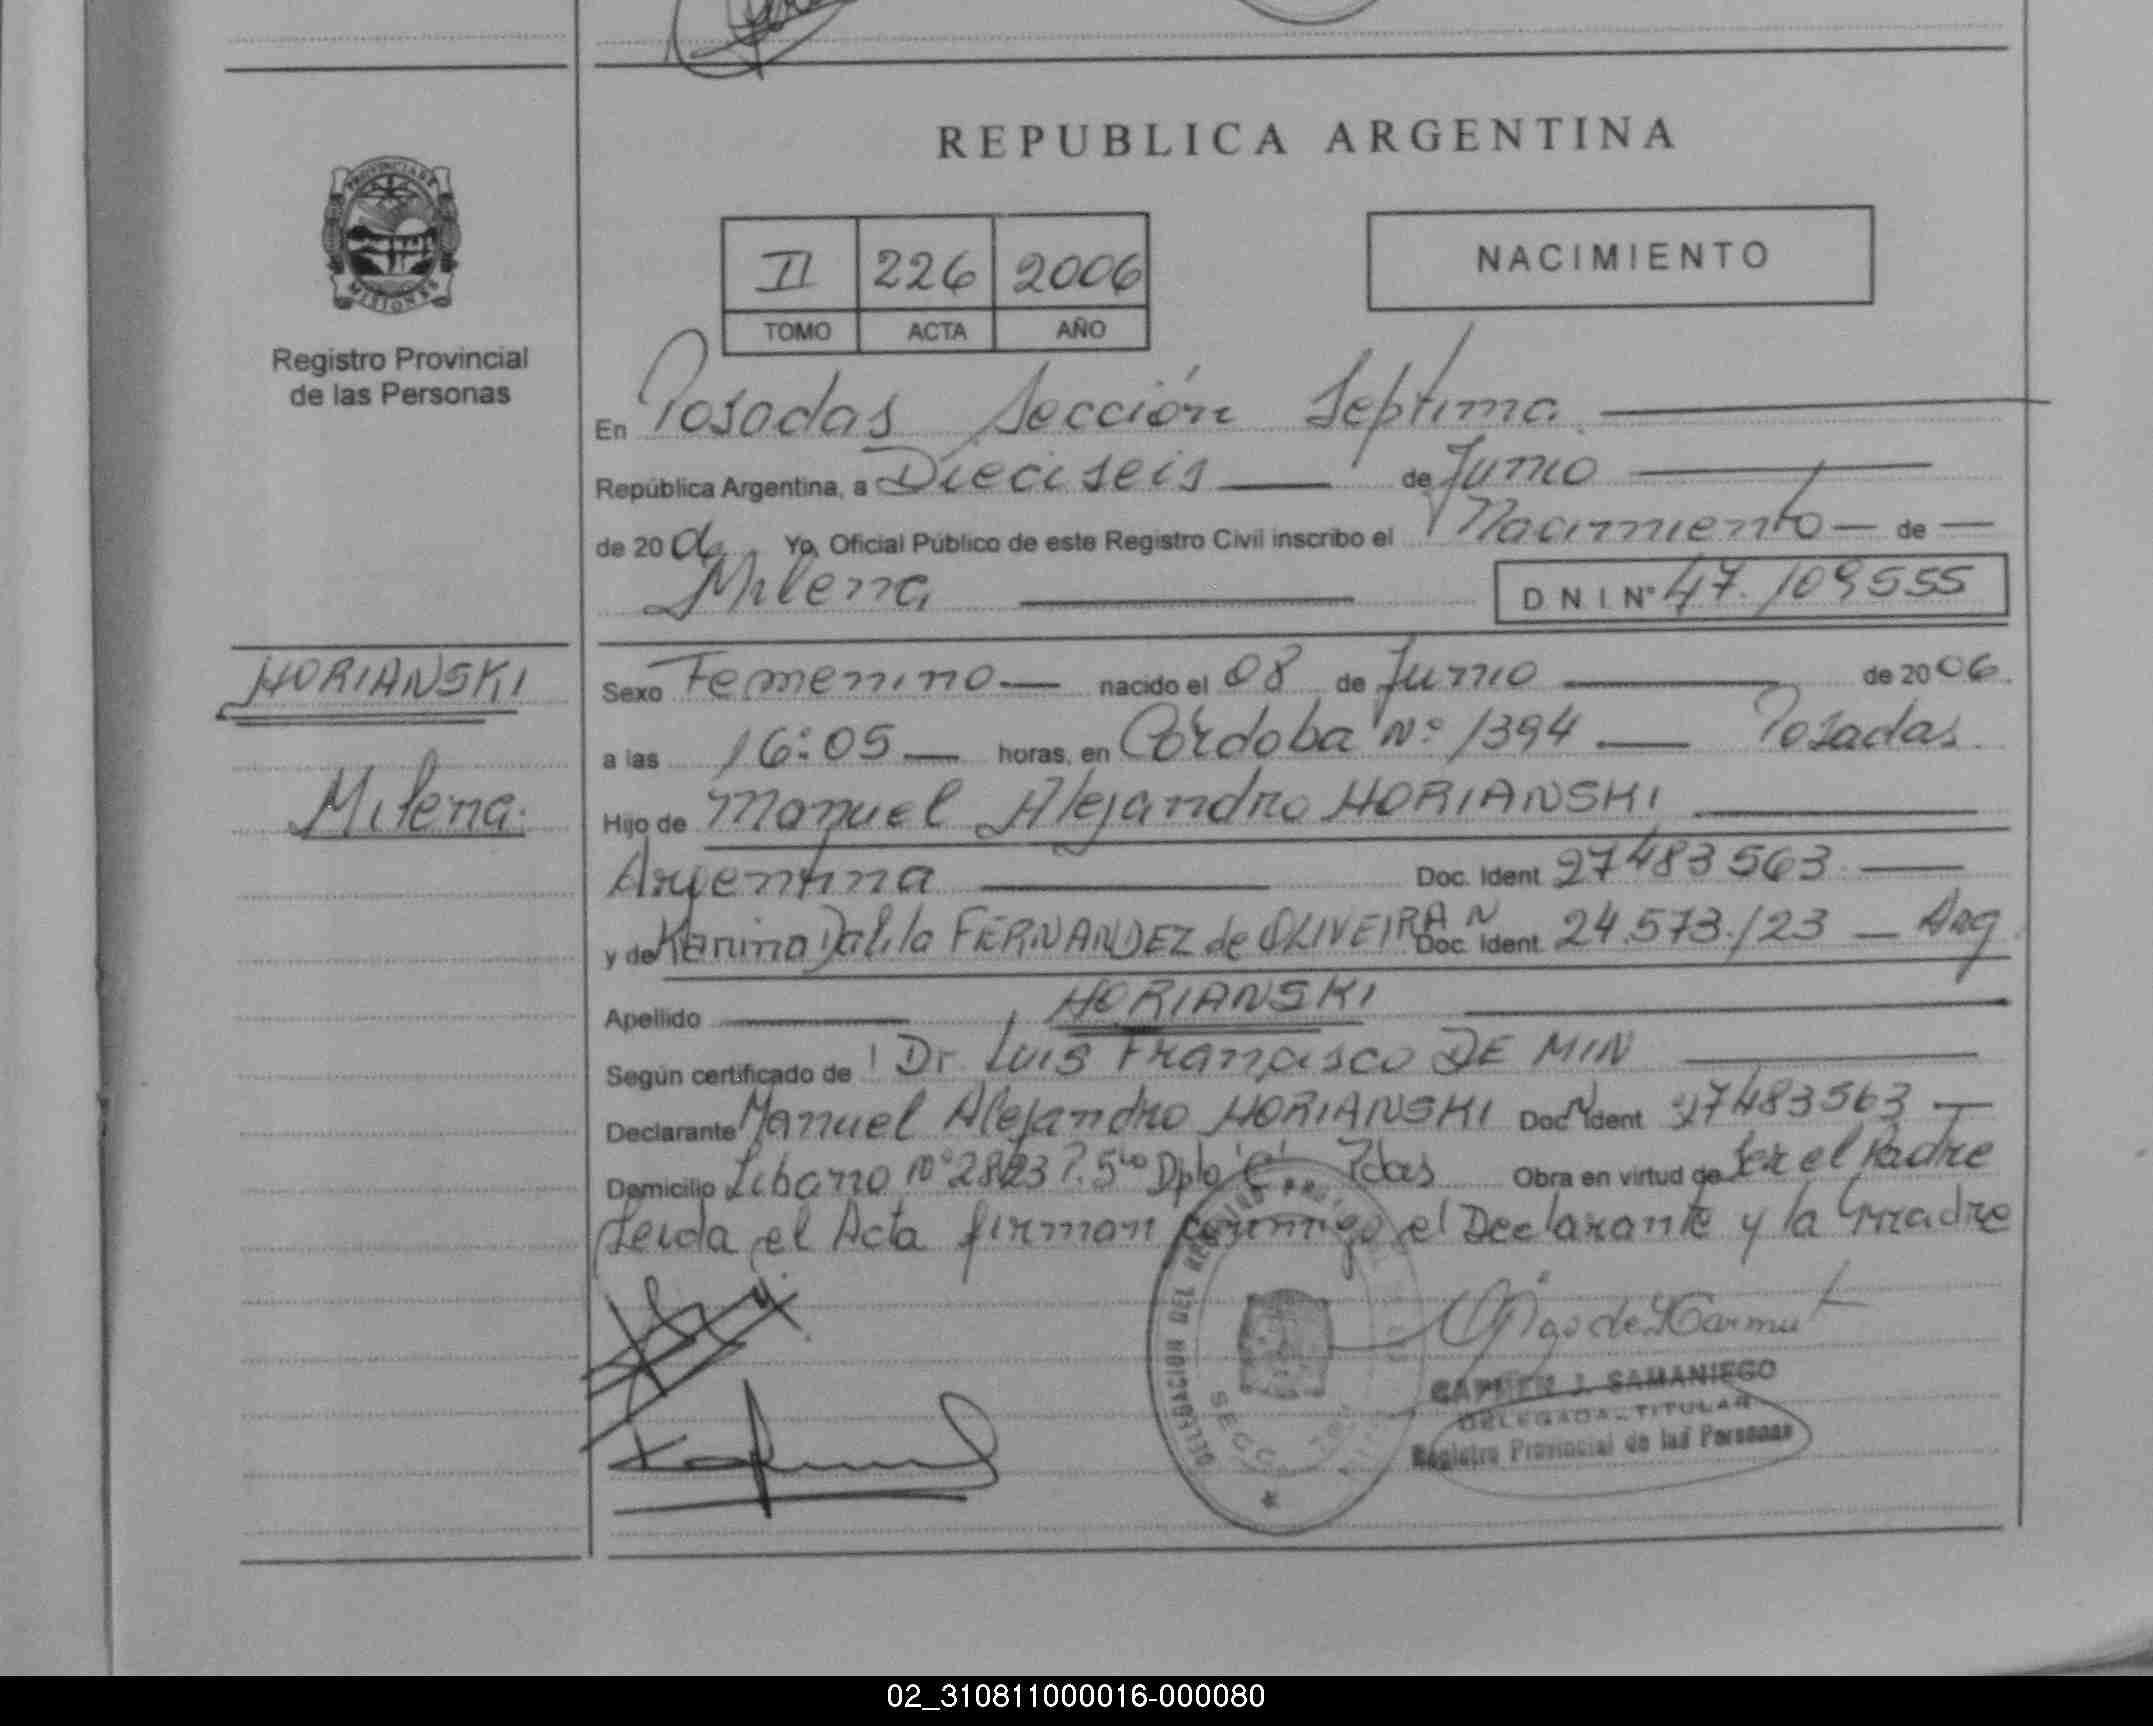 REPUBLICA ARGENTINA
PROVINCIA DE
MISIONES
Registro Provincial
de las Personas
II 226 2006
TOMO ACTA AÑO
NACIMIENTO
En Posadas Sección Séptima
República Argentina, a Dieciseis de Junio
de 2006 Yo, Oficial Público de este Registro Civil inscribo el Nacimiento de
Milena DNI Nº 47.109555
HORIANSKI
Milena.
Sexo Femenino nacido el 08 de Junio de 2006.
a las 16:05 horas, en Córdoba Nº 1394 Posadas.
Hijo de Manuel Alejandro HORIANSKI
Argentina Doc. Ident 27483563
y de Karina Dalila FERNANDEZ de OLIVEIRA N Doc. Ident. 24.573.123 Arg
Apellido HORIANSKI
Según certificado de Dr. Luis Francisco DE MIN
Declarante Manuel Alejandro HORIANSKI Doc. Ident 27483563
Domicilio Libano Nº 2823 P. 5to Dpto "C" Pdas Obra en virtud de Ser el Padre
Leida el Acta firman conmigo el Declarante y la Madre
DELEGACION DEL
CARMEN J. SAMANIEGO
DELEGADA TITULAR
Registro Provincial de las Personas
02_310811000016-000080